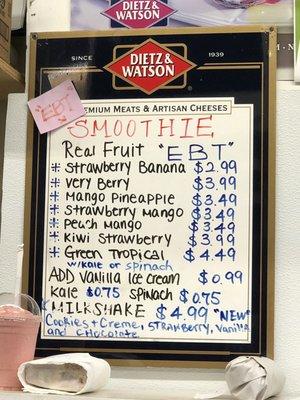 DIETZ &
WATSON
SINCE
DIETZ
& WATSON
1939
"EBT"
PREMIUM MEATS & ARTISAN CHEESES
SMOOTHIE
Real Fruit "EBT"
* Strawberry Banana $2.99
* Very Berry $3.99
* Mango Pineapple $3.49
* Strawberry Mango $3.49
* Peach Mango $3.49
* Kiwi Strawberry $3.99
* Green Tropical $4.49
w/kale or spinach
ADD Vanilla Ice cream $0.99
Kale $0.75 Spinach $0.75
MILKSHAKE $4.99 "NEW"
Cookies + Creme, STRAWBERRY, Vanilla
and CHocolate